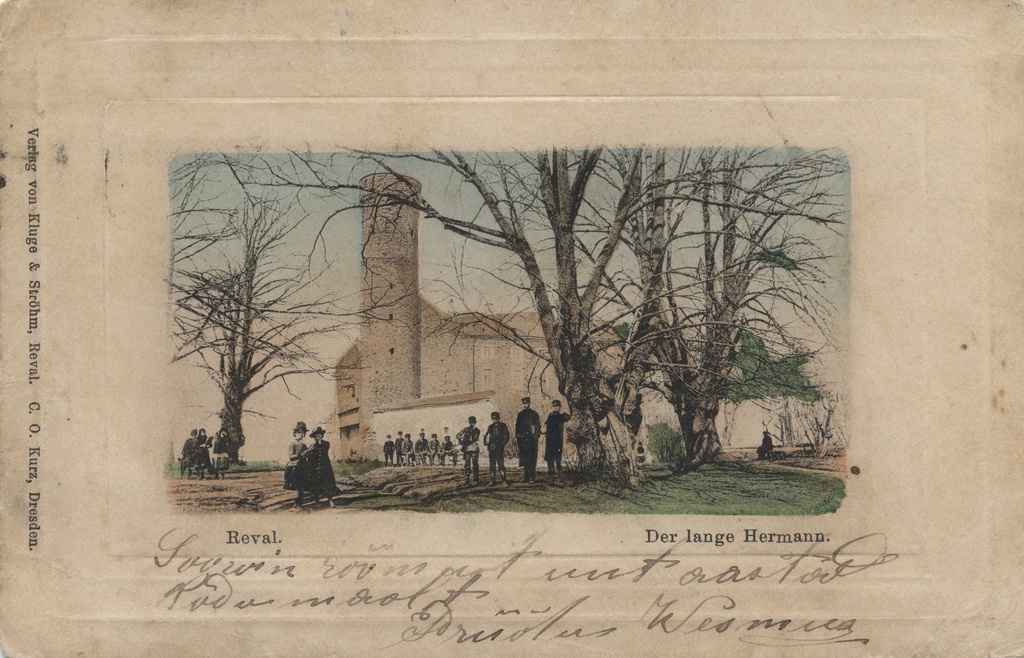 Verlag von Kluge & Ströhm, Reval. C. O. Kurz, Dresden.
Reval.
Der lange Hermann.
Soovin röömsat uut aastat
Kodu maalt